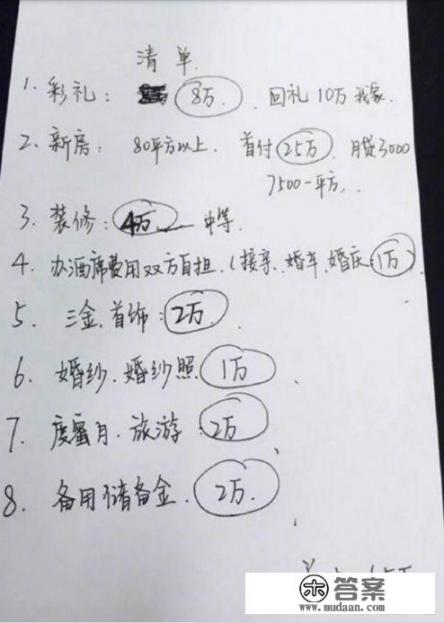 清单.
1. 彩礼: 8万. 回礼10万我家.
2. 新房: 80平方以上. 首付25万. 月贷3000
7500一平方.
3. 装修: 4万 中等.
4. 办酒席费用双方自担.(接亲、婚车、婚庆:1万)
5. 三金.首饰:2万
6. 婚纱.婚纱照.1万.
7. 度蜜月.旅游:2万
8. 备用储备金.2万.
答案
www.mudaan.com